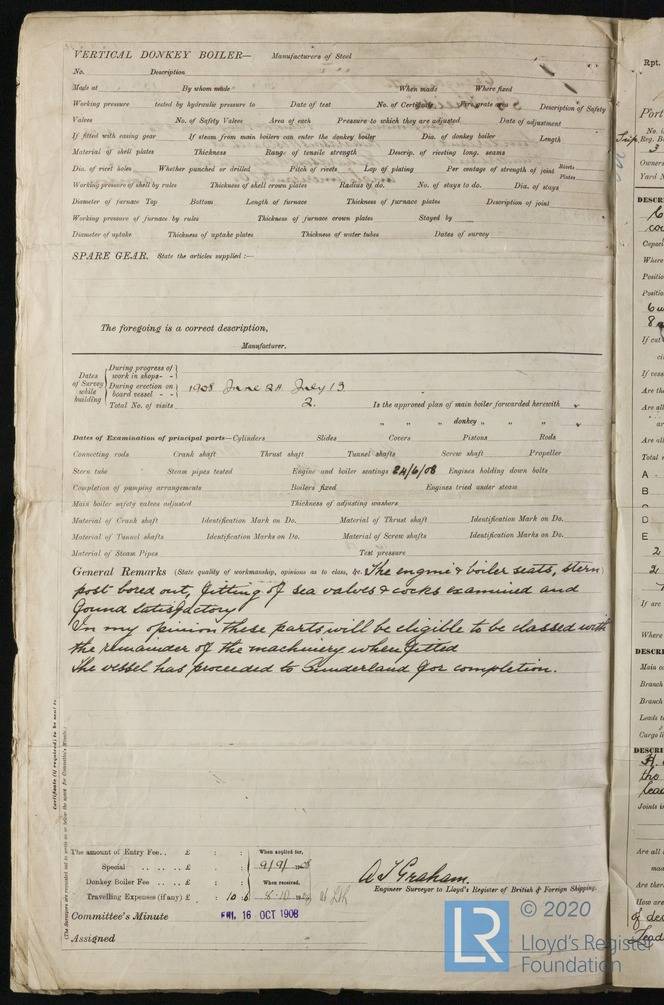 VERTICAL DONKEY BOILER— Manufacturers of Steel
No. Description
Made at By whom made When made Where fixed
Working pressure tested by hydraulic pressure to Date of test No. of Certificate Fire grate area Description of Safety
Valves No. of Safety Valves Area of each Pressure to which they are adjusted Date of adjustment
If fitted with easing gear If steam from main boilers can enter the donkey boiler Dia. of donkey boiler Length
Material of shell plates Thickness Range of tensile strength Descrip. of riveting long. seams
Dia. of rivet holes Whether punched or drilled Pitch of rivets Lap of plating Per centage of strength of joint Rivets Plates
Working pressure of shell by rules Thickness of shell crown plates Radius of do. No. of stays to do. Dia. of stays
Diameter of furnace Top Bottom Length of furnace Thickness of furnace plates Description of joint
Working pressure of furnace by rules Thickness of furnace crown plates Stayed by
Diameter of uptake Thickness of uptake plates Thickness of water tubes Dates of survey
SPARE GEAR. State the articles supplied:—
The foregoing is a correct description,
Manufacturer.
Dates of Survey while building
During progress of work in shops - -
During erection on board vessel - - 1908 June 24. July 13
Total No. of visits 2. Is the approved plan of main boiler forwarded herewith
" " " donkey " " "
Dates of Examination of principal parts—Cylinders Slides Covers Pistons Rods
Connecting rods Crank shaft Thrust shaft Tunnel shafts Screw shaft Propeller
Stern tube Steam pipes tested Engine and boiler seatings 24/6/08 Engines holding down bolts
Completion of pumping arrangements Boilers fixed Engines tried under steam
Main boiler safety valves adjusted Thickness of adjusting washers
Material of Crank shaft Identification Mark on Do. Material of Thrust shaft Identification Mark on Do.
Material of Tunnel shafts Identification Marks on Do. Material of Screw shafts Identification Marks on Do.
Material of Steam Pipes Test pressure
General Remarks (State quality of workmanship, opinions as to class, &c. The engine & boiler seats, stern
post bored out, fitting of sea valves & cocks examined and
found satisfactory
In my opinion these parts will be eligible to be classed with
the remainder of the machinery when fitted
The vessel has proceeded to Sunderland for completion.
Certificate (if required) to be sent to
(The Surveyors are requested not to write on or below the space for Committee's Minute.)
The amount of Entry Fee.. £ : : When applied for,
Special .. .. .. .. £ : : 9/9/1908
Donkey Boiler Fee .. .. £ : : When received,
Travelling Expenses (if any) £ : 10 : 6
A T Graham.
Engineer Surveyor to Lloyd's Register of British & Foreign Shipping.
Committee's Minute FRI. 16 OCT 1908
Assigned
LR © 2020
Lloyd's Register
Foundation
Rpt.
Port
No. in
Reg. B
Owners
Yard N
DESCRI
Capaci
Where
Positio
Position
If cut
If vess
Are th
Are all
Total
A
B
D
E
2
If are
Where
DESCRI
Main co
Branch
Branch
Leads t
Cargo li
DESCRI
Joints i
Are all
Are ther
How are
of dec
Lead